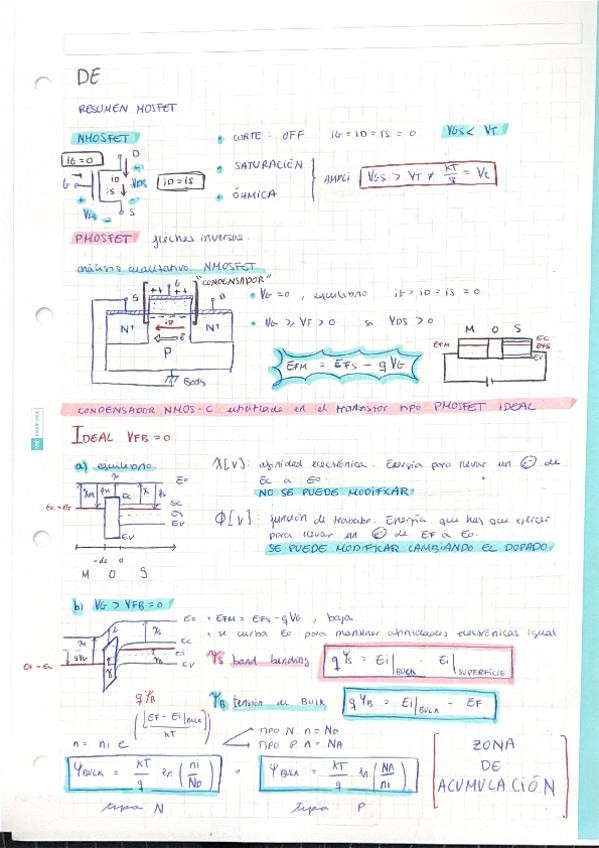 DE
RESUMEN MOSFET
NMOSFET
• CORTE: OFF iG = iD = iS = 0 VGS < VT
iG = 0
D
G
iD
iS
VDS
iD = iS
VGS
S
• SATURACIÓN
• ÓHMICA
AMPLI VGS > VT ≠ KT/q = Vt
PMOSFET flechas inversas.
análisis cualitativo NMOSFET
"CONDENSADOR"
S
G
D
++ ++
N+
iD
N+
E
P
Body
• VG = 0, equilibrio iG = iD = iS = 0
• VG ≥ VT > 0 si VDS > 0
EFM = EFS - qVG
M O S
EFM
EC
EFS
EV
CONDENSADOR NMOS-C en el transistor tipo PMOSFET IDEAL
IDEAL VFB = 0
a) equilibrio
E0
EC
EF
Ei
EV
M O S
X[V]: afinidad electrónica. Energía para llevar un ⊖ de
EC a E0.
NO SE PUEDE MODIFICAR!
Φ[V]: función de trabajo. Energía que hay que ejercer
para llevar un ⊖ de EF a E0.
SE PUEDE MODIFICAR CAMBIANDO EL DOPADO.
b) VG > VFB = 0
E0
EC
Ei
EV
qVG
• EFM = EFS - qVG, baja
• se curba E0 para mantener afinidades electrónicas igual
Ψs band bending qΨs = Ei|BULK - Ei|SUPERFICIE
ΨB tensión de BULK qΨB = Ei|BULK - EF
qΨB
n = ni e ([EF - Ei|BULK] / KT)
TIPO N n = ND
TIPO P n = NA
ΨBULK = KT/q ln (ni/ND)
ΨBULK = KT/q ln (NA/ni)
tipo N
tipo P
ZONA
DE
ACUMULACIÓN